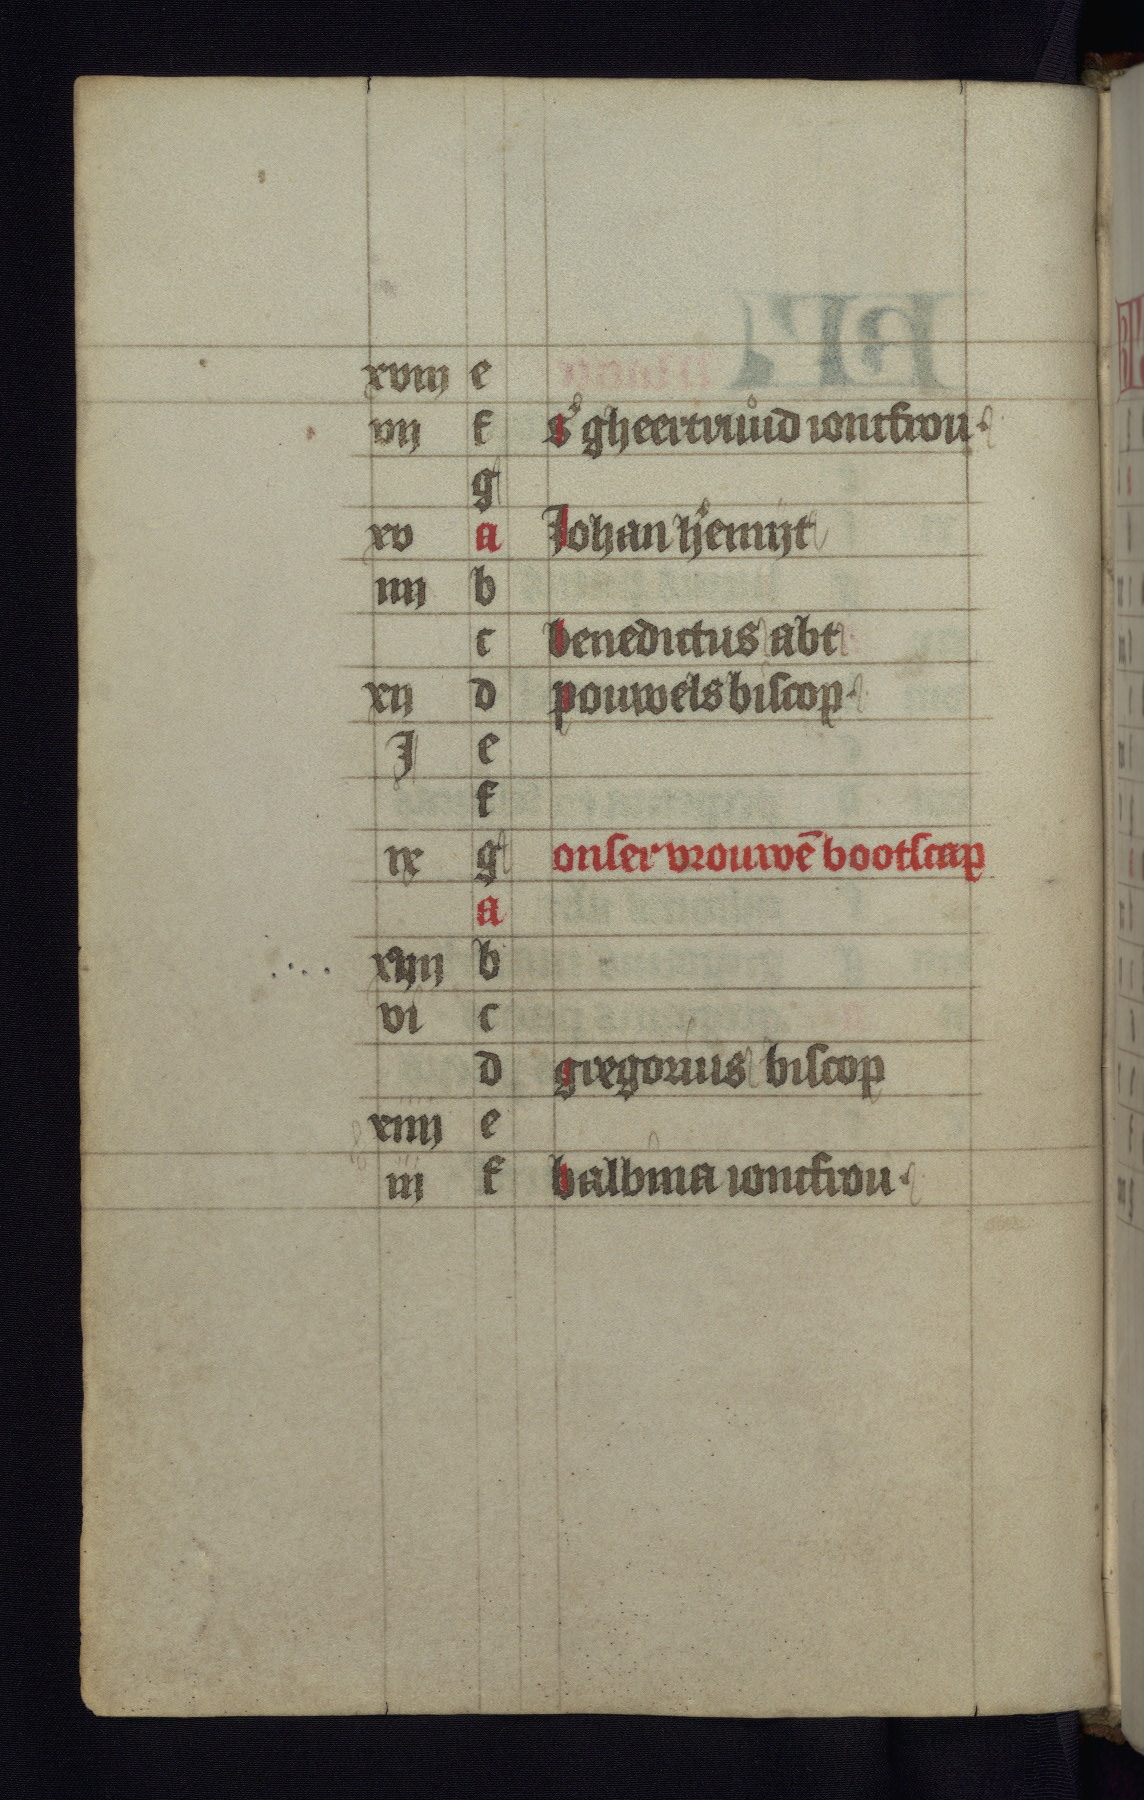 xviij e
vij f sͤ gheertruud ioncfrou
g
xv a Johan hͤemijt
iiij b
c benedictus abt
xij d pouwels biscop
J e
f
ix g onser vrouwē bootscap
a
xvij b
vi c
d gregorius biscop
xiiij e
iij f balbina ioncfrou